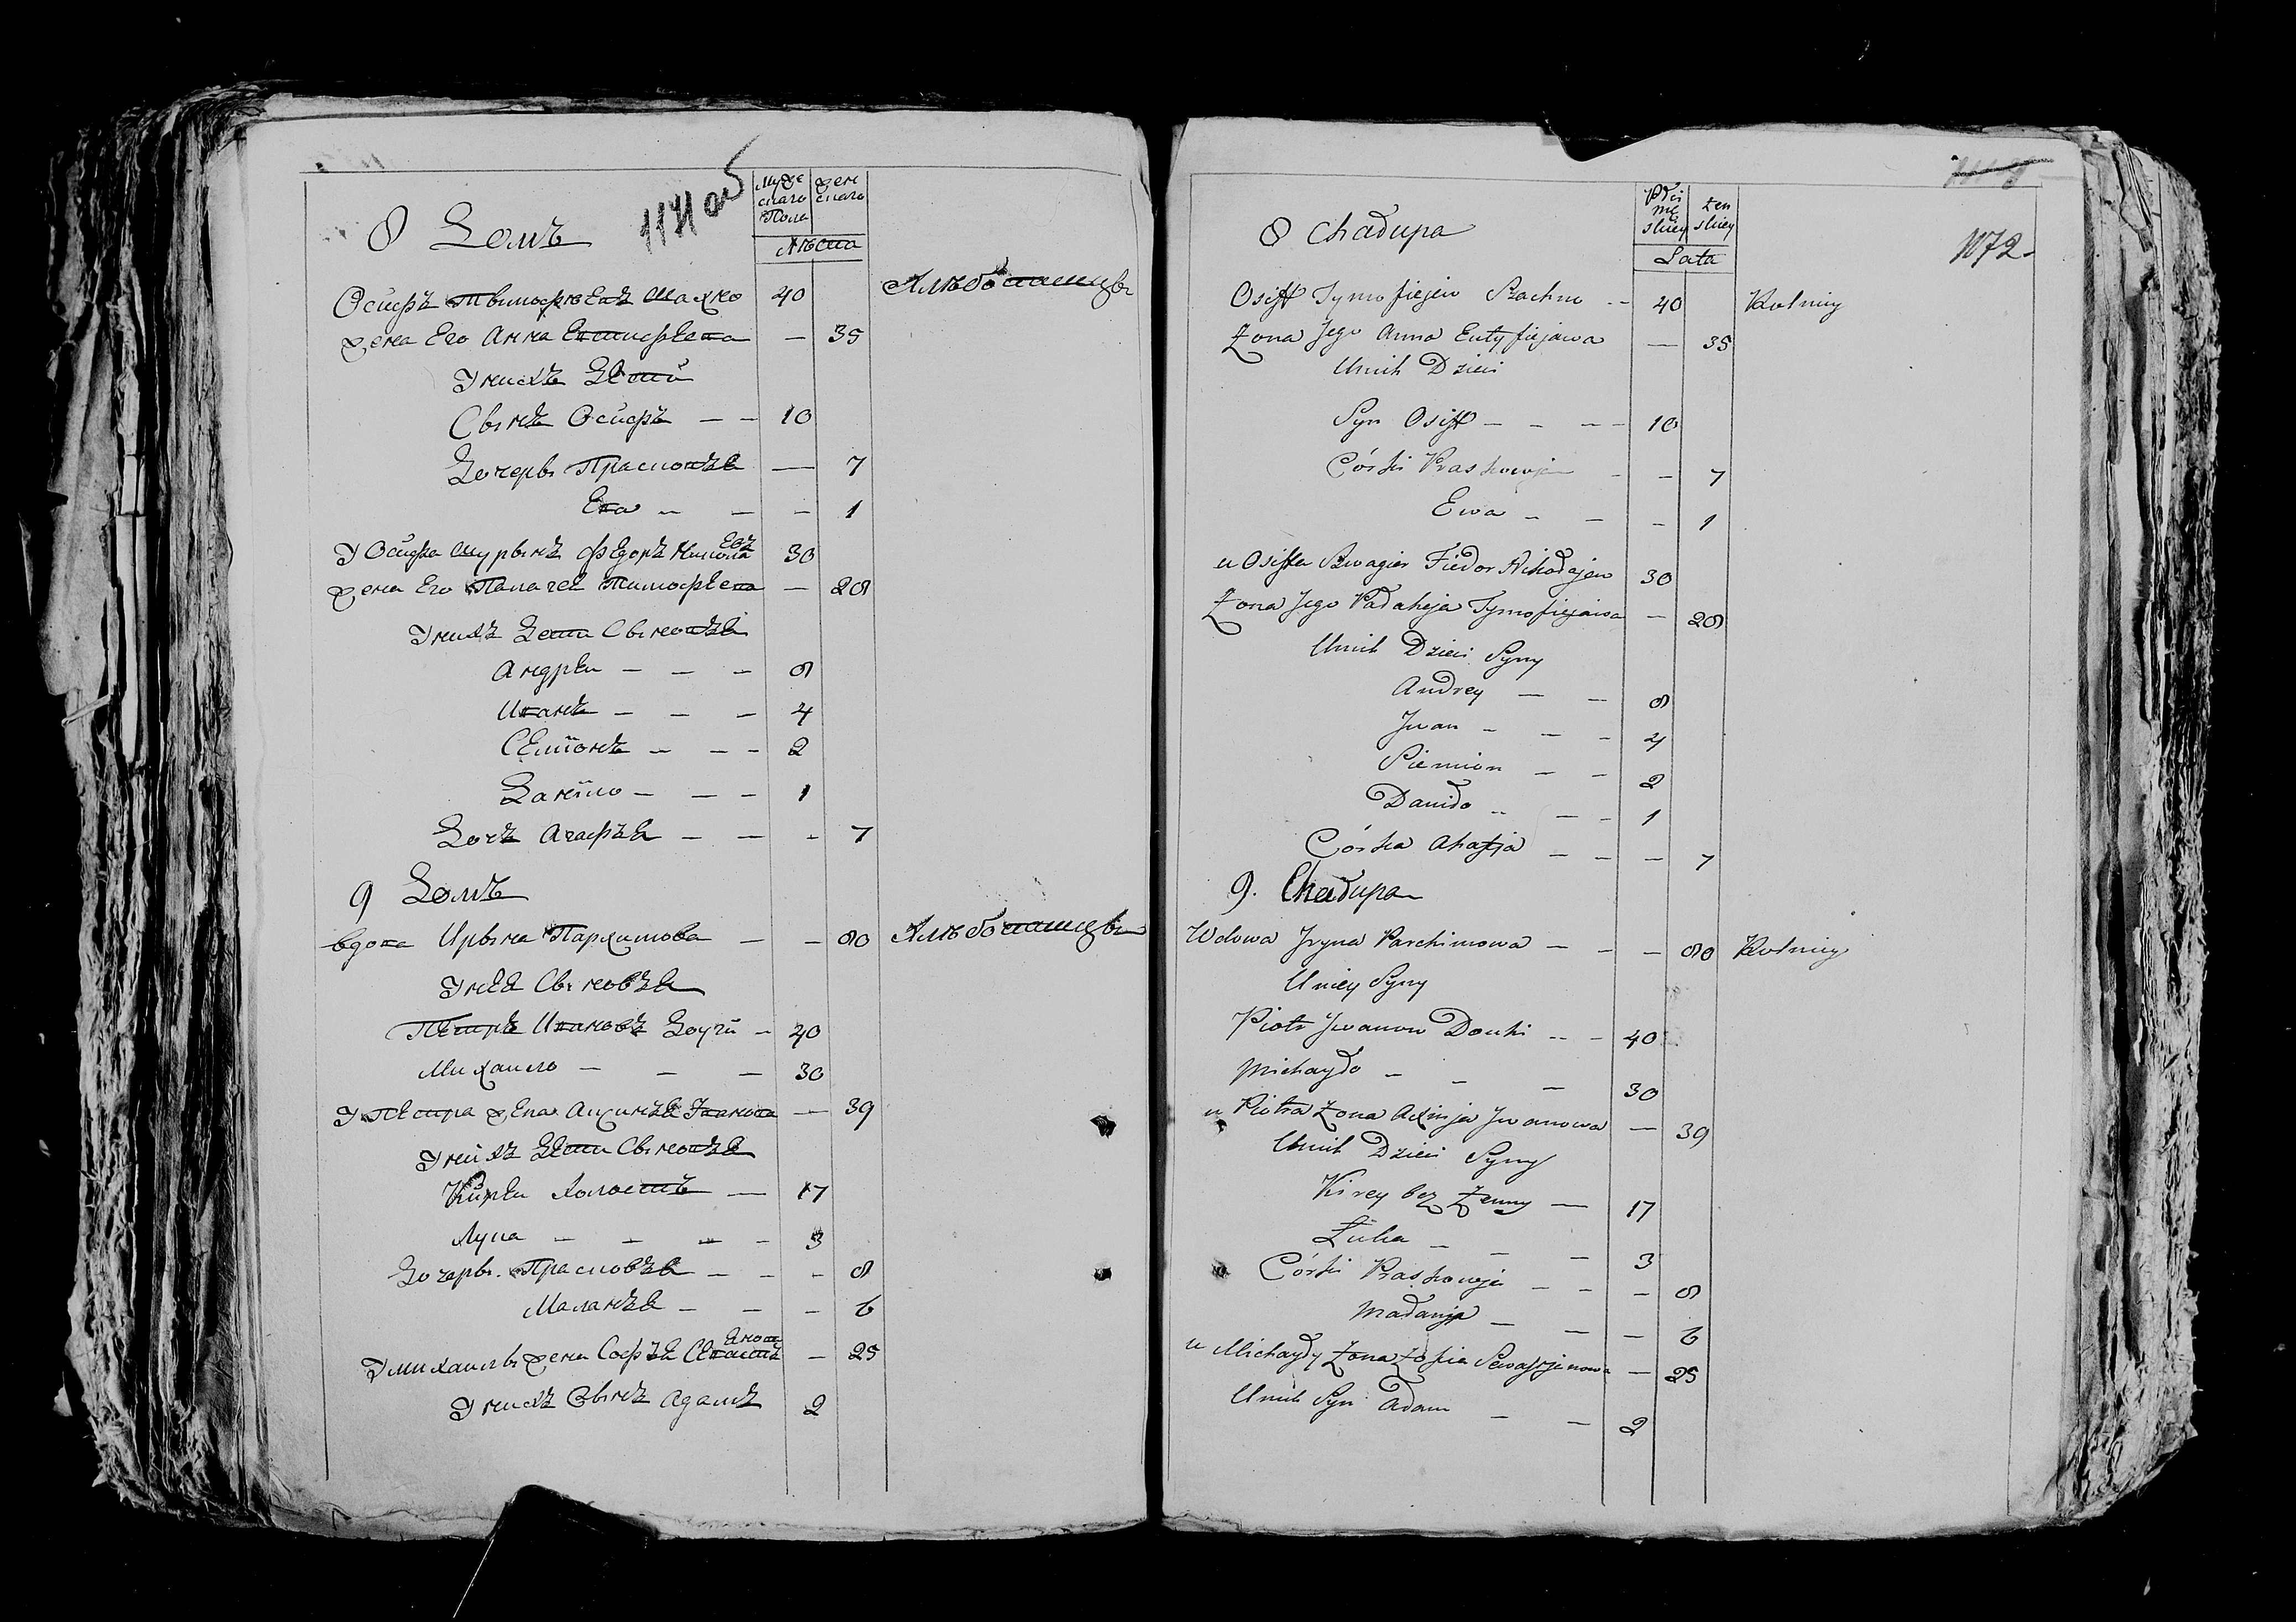 8 Домъ
Муже
скаго
Пола
жен
скаго
Лѣта
Осифъ Тимофѣевъ Шахно 40
Хлѣбопашцы
жена Его Анна Евтифѣева — 35
У нихъ Дѣти
Сынъ Осифъ — — 10
Дочеры Прасковѣя — 7
Ева — — — 1
У Осифа шурынъ Федоръ Никола
евъ 30
жена Его Палагея Тимофѣева — 28
У нихъ Дети Сыновѣя
Андрей — — — 8
Иванъ — — — 4
Семіонъ — — — 2
Даніло — — — 1
Дочъ Агафѣя — — — 7
9 Домъ
вдова Ирына Пархимова — — 80 Хлѣбопашцы
У нея Сыновѣя
Петръ Ивановъ Доуги — 40
Михаило — — — 30
У Петра жена Аксинѣя Иванова — 39
У нихъ Дети Сыновѣя
Кирѣй холостъ — 17
Лука — — — — 3
Дочеры. Прасковѣя — — — 8
Маланѣя — — — 6
У михаилы жена Софѣя Севастѣ
янова — 25
У нихъ Сынъ Адамъ 2
8 Chałupa
Mę
skiey
żen
skiey
Lata
1172
Osiff Tymofiejew Szachno — 40 Rolnicy
Żona Jego Anna Eutyfiejawa — 35
Unich Dzieci
Syn Osiff — — — 10
Córki Praskowja — — 7
Ewa — — — 1
u Osiffa Szwagier Fiedor Nikołajew 30
Żona Jego Pałaheja Tymofiejawa — 28
Unich Dzieci Syny
Andrey — — 8
Jwan — — — 4
Siemion — — 2
Daniło — — — 1
Córka Ahafja — — — 7
9. Chałupa
Wdowa Jryna Parchimowa — — — 80 Rolnicy
Uniey Syny
Piotr Jwanow Douhi — — 40
Michayło — — — 30
u Piotra Żona Axinja Jwanowa — 39
Unich Dzieci Syny
Kirey bez Żenny — 17
Łuka — — — 3
Córki Praskowja — — — 8
Małanja — — — 6
u Michayły Żona Zofia Sewastjanowa — 25
Unich Syn Adam — — 2